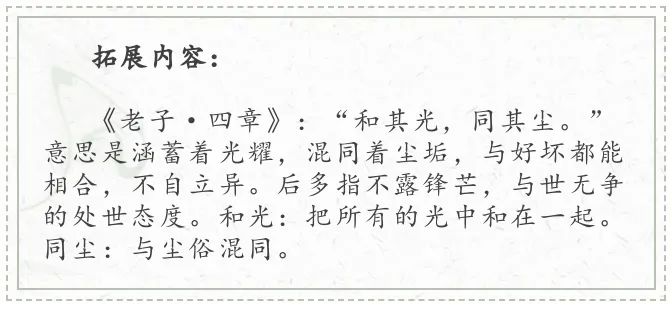 拓展内容：
《老子·四章》：“和其光，同其尘。”
意思是涵蓄着光耀，混同着尘垢，与好坏都能
相合，不自立异。后多指不露锋芒，与世无争
的处世态度。和光：把所有的光中和在一起。
同尘：与尘俗混同。